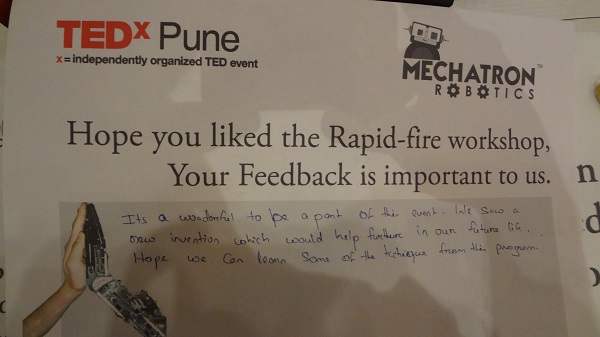 TEDx Pune
x = independently organized TED event
MECHATRON™
ROBOTICS
Hope you liked the Rapid-fire workshop,
Your Feedback is important to us.
Its a wondonful to be a part of this event. We saw a
new invention which would help further in our future life..
Hope we can learn some of the technique from this program
n
d